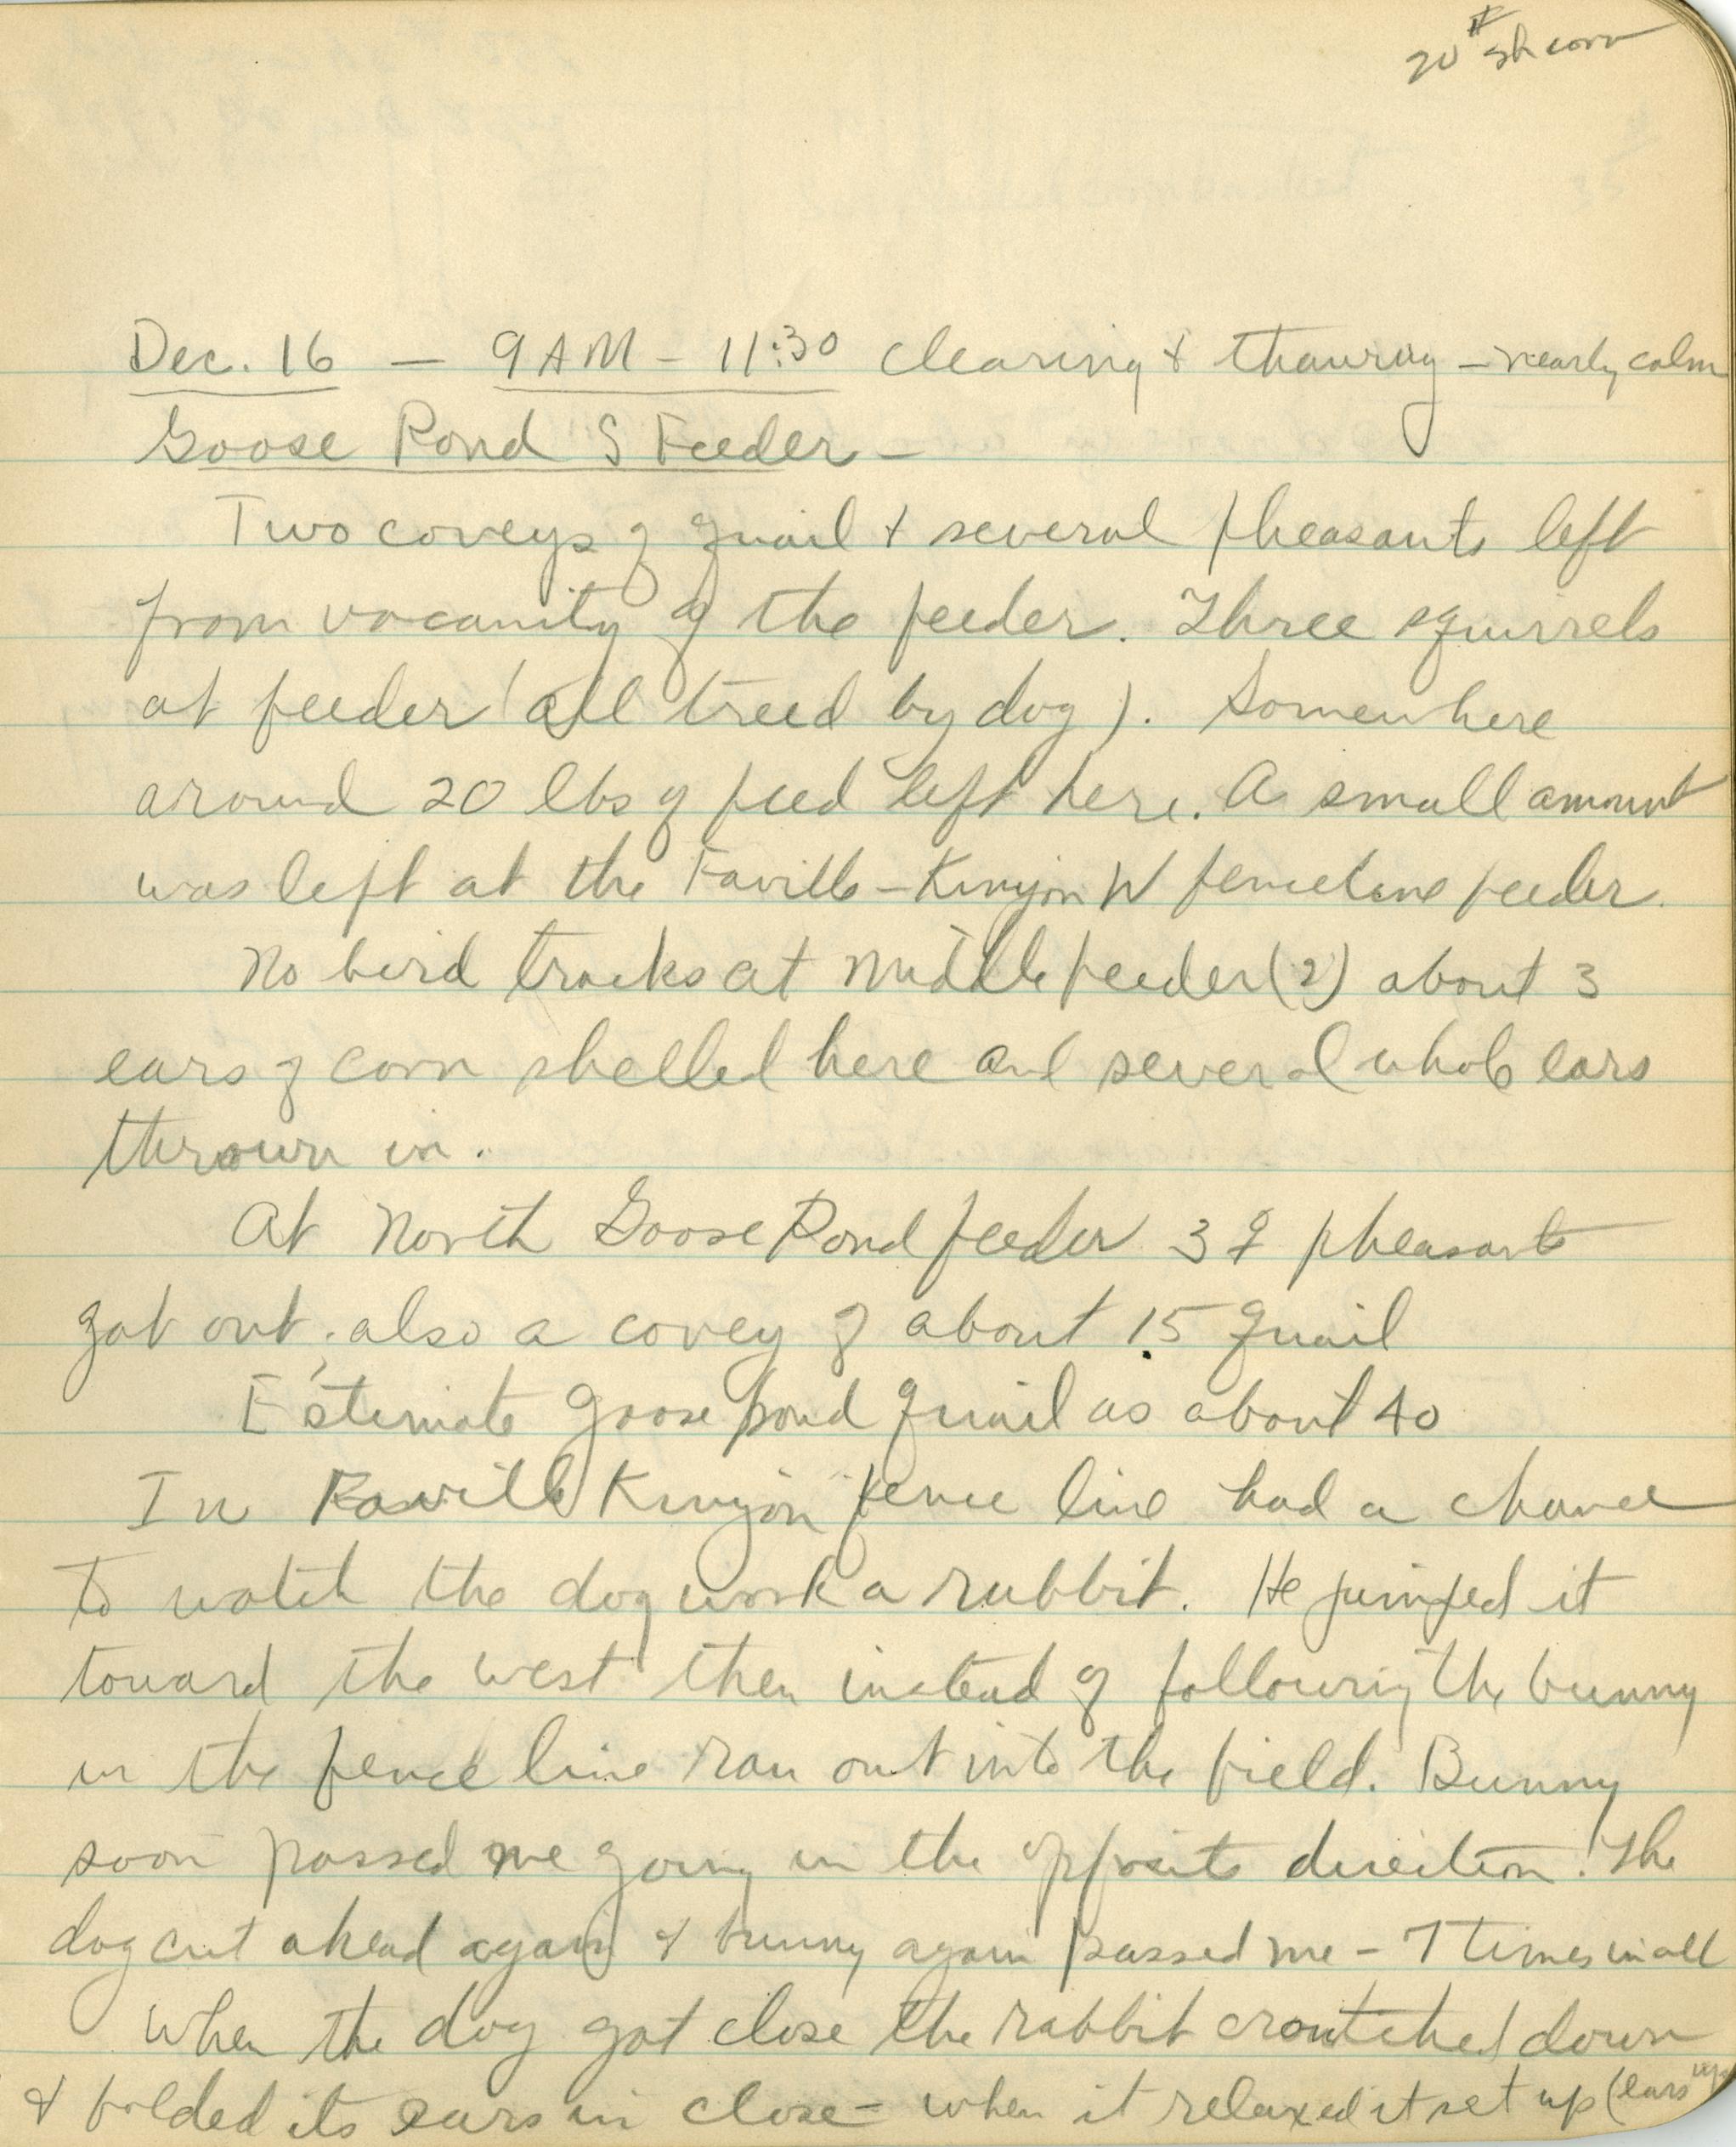 20# sh corn
Dec. 16 — 9 AM - 11:30 clearing & thawing - nearly calm
Goose Pond S Feeder -
Two coveys of quail & several pheasants left
from vacanity of the feeder. Three squirrels
at feeder (all treed by dog). Somewhere
around 20 lbs of feed left here. A small amount
was left at the Faville-Kinyon W fenceline feeder.
No bird tracks at middle feeder (2) about 3
ears of corn shelled here and several whole ears
thrown in.
At North Goose Pond feeder 3 ♀ pheasants
got out, also a covey of about 15 quail
Estimate goose pond quail as about 40
In Faville Kinyon fence line had a chance
to watch the dog work a rabbit. He jumped it
toward the west then instead of following the bunny
in the fence line ran out into the field. Bunny
soon passed me going in the opposite direction! The
dog cut ahead again & bunny again passed me - 7 times in all
When the dog got close the rabbit croutched down
& folded its ears in close - when it relaxed it set up (ears up